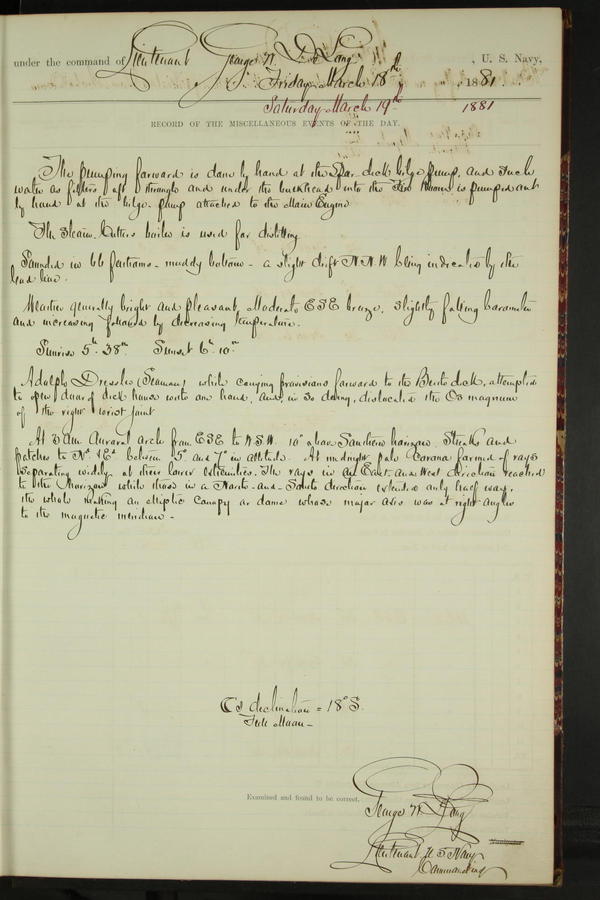 under the command of Lieutenant George W. De Long , U. S. Navy,
Friday March 18th , 1881.
Saturday March 19th 1881
RECORD OF THE MISCELLANEOUS EVENTS OF THE DAY.
The pumping forward is done by hand at the Spar deck bilge pump, and such
water as filters aft through and under the bulkhead into the Fire Room is pumped out
by hand at the bilge pump attached to the Main Engine
The Steam Cutters boiler is used for distilling.
Sounded in 66 fathoms - muddy bottom - a slight drift N N W being indicated by the
lead line.
Weather generally bright and pleasant, Moderate ESE breeze, slightly falling barometer
and increasing followed by decreasing temperature.
Sunrise 5h 38m Sunset 6h 10m
Adolph Dressler (Seaman) while carrying provisions forward to the Berth deck, attempted
to open door of deck house with one hand, and, in so doing, dislocated the Os magnum
of the right wrist joint
At 3 AM Auroral arch from ESE to WSW 10° above Southern horizon Streaks and
patches to Nd & Ed between 5° and 7° in altitude. At midnight pale Corona formed of rays
separating widely at their lower extremities. The rays in an East and West direction reached
to the Horizon while those in a North-and-South direction extended only half way,
the whole making an elliptic Canopy or dome whose major axis was at right angles
to the magnetic meridian -
C's declination = 18° S.
Full Moon -
Examined and found to be correct.
George W. De Long
Lieutenant U S Navy
Commanding